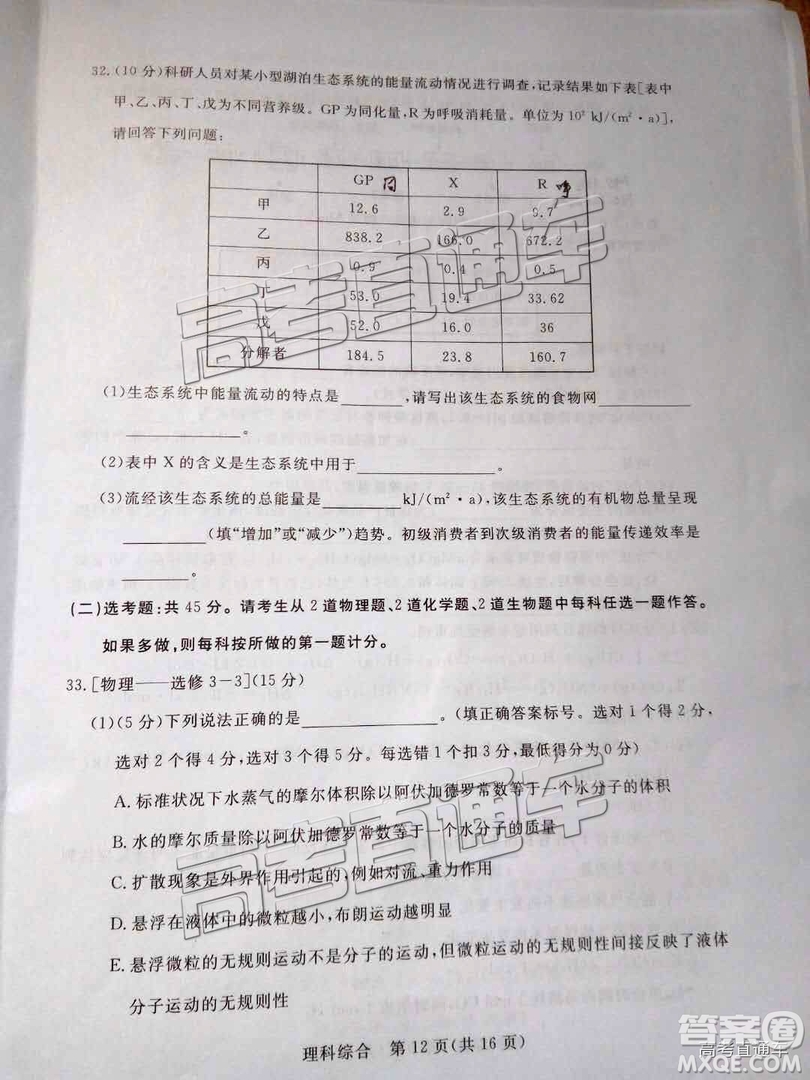 32.(10分)科研人员对某小型湖泊生态系统的能量流动情况进行调查,记录结果如下表[表中
甲、乙、丙、丁、戊为不同营养级。GP为同化量,R为呼吸消耗量。单位为10² kJ/(m²·a)],
请回答下列问题:
GP 同 X R 呼
甲 12.6 2.9 9.7
乙 838.2 166.0 672.2
丙 0.9 0.4 0.5
丁 53.0 19.4 33.62
戊 52.0 16.0 36
分解者 184.5 23.8 160.7
(1)生态系统中能量流动的特点是______,请写出该生态系统的食物网________
____________。
(2)表中X的含义是生态系统中用于____________。
(3)流经该生态系统的总能量是________kJ/(m²·a),该生态系统的有机物总量呈现
________(填“增加”或“减少”)趋势。初级消费者到次级消费者的能量传递效率是
________。
(二)选考题:共45分。请考生从2道物理题、2道化学题、2道生物题中每科任选一题作答。
如果多做,则每科按所做的第一题计分。
33.[物理——选修3-3](15分)
(1)(5分)下列说法正确的是____________。(填正确答案标号。选对1个得2分,
选对2个得4分,选对3个得5分。每选错1个扣3分,最低得分为0分)
A.标准状况下水蒸气的摩尔体积除以阿伏加德罗常数等于一个水分子的体积
B.水的摩尔质量除以阿伏加德罗常数等于一个水分子的质量
C.扩散现象是外界作用引起的,例如对流、重力作用
D.悬浮在液体中的微粒越小,布朗运动越明显
E.悬浮微粒的无规则运动不是分子的运动,但微粒运动的无规则性间接反映了液体
分子运动的无规则性
理科综合 第12页(共16页)
高考直通车
高考直通车
答案圈
高考直通车
MXQE.COM